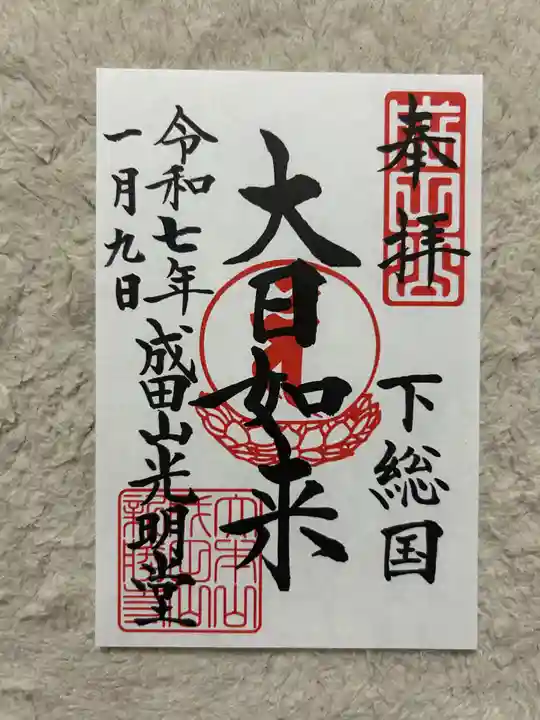 奉拝
下総国
大日如来
令和七年
一月九日
成田山光明堂